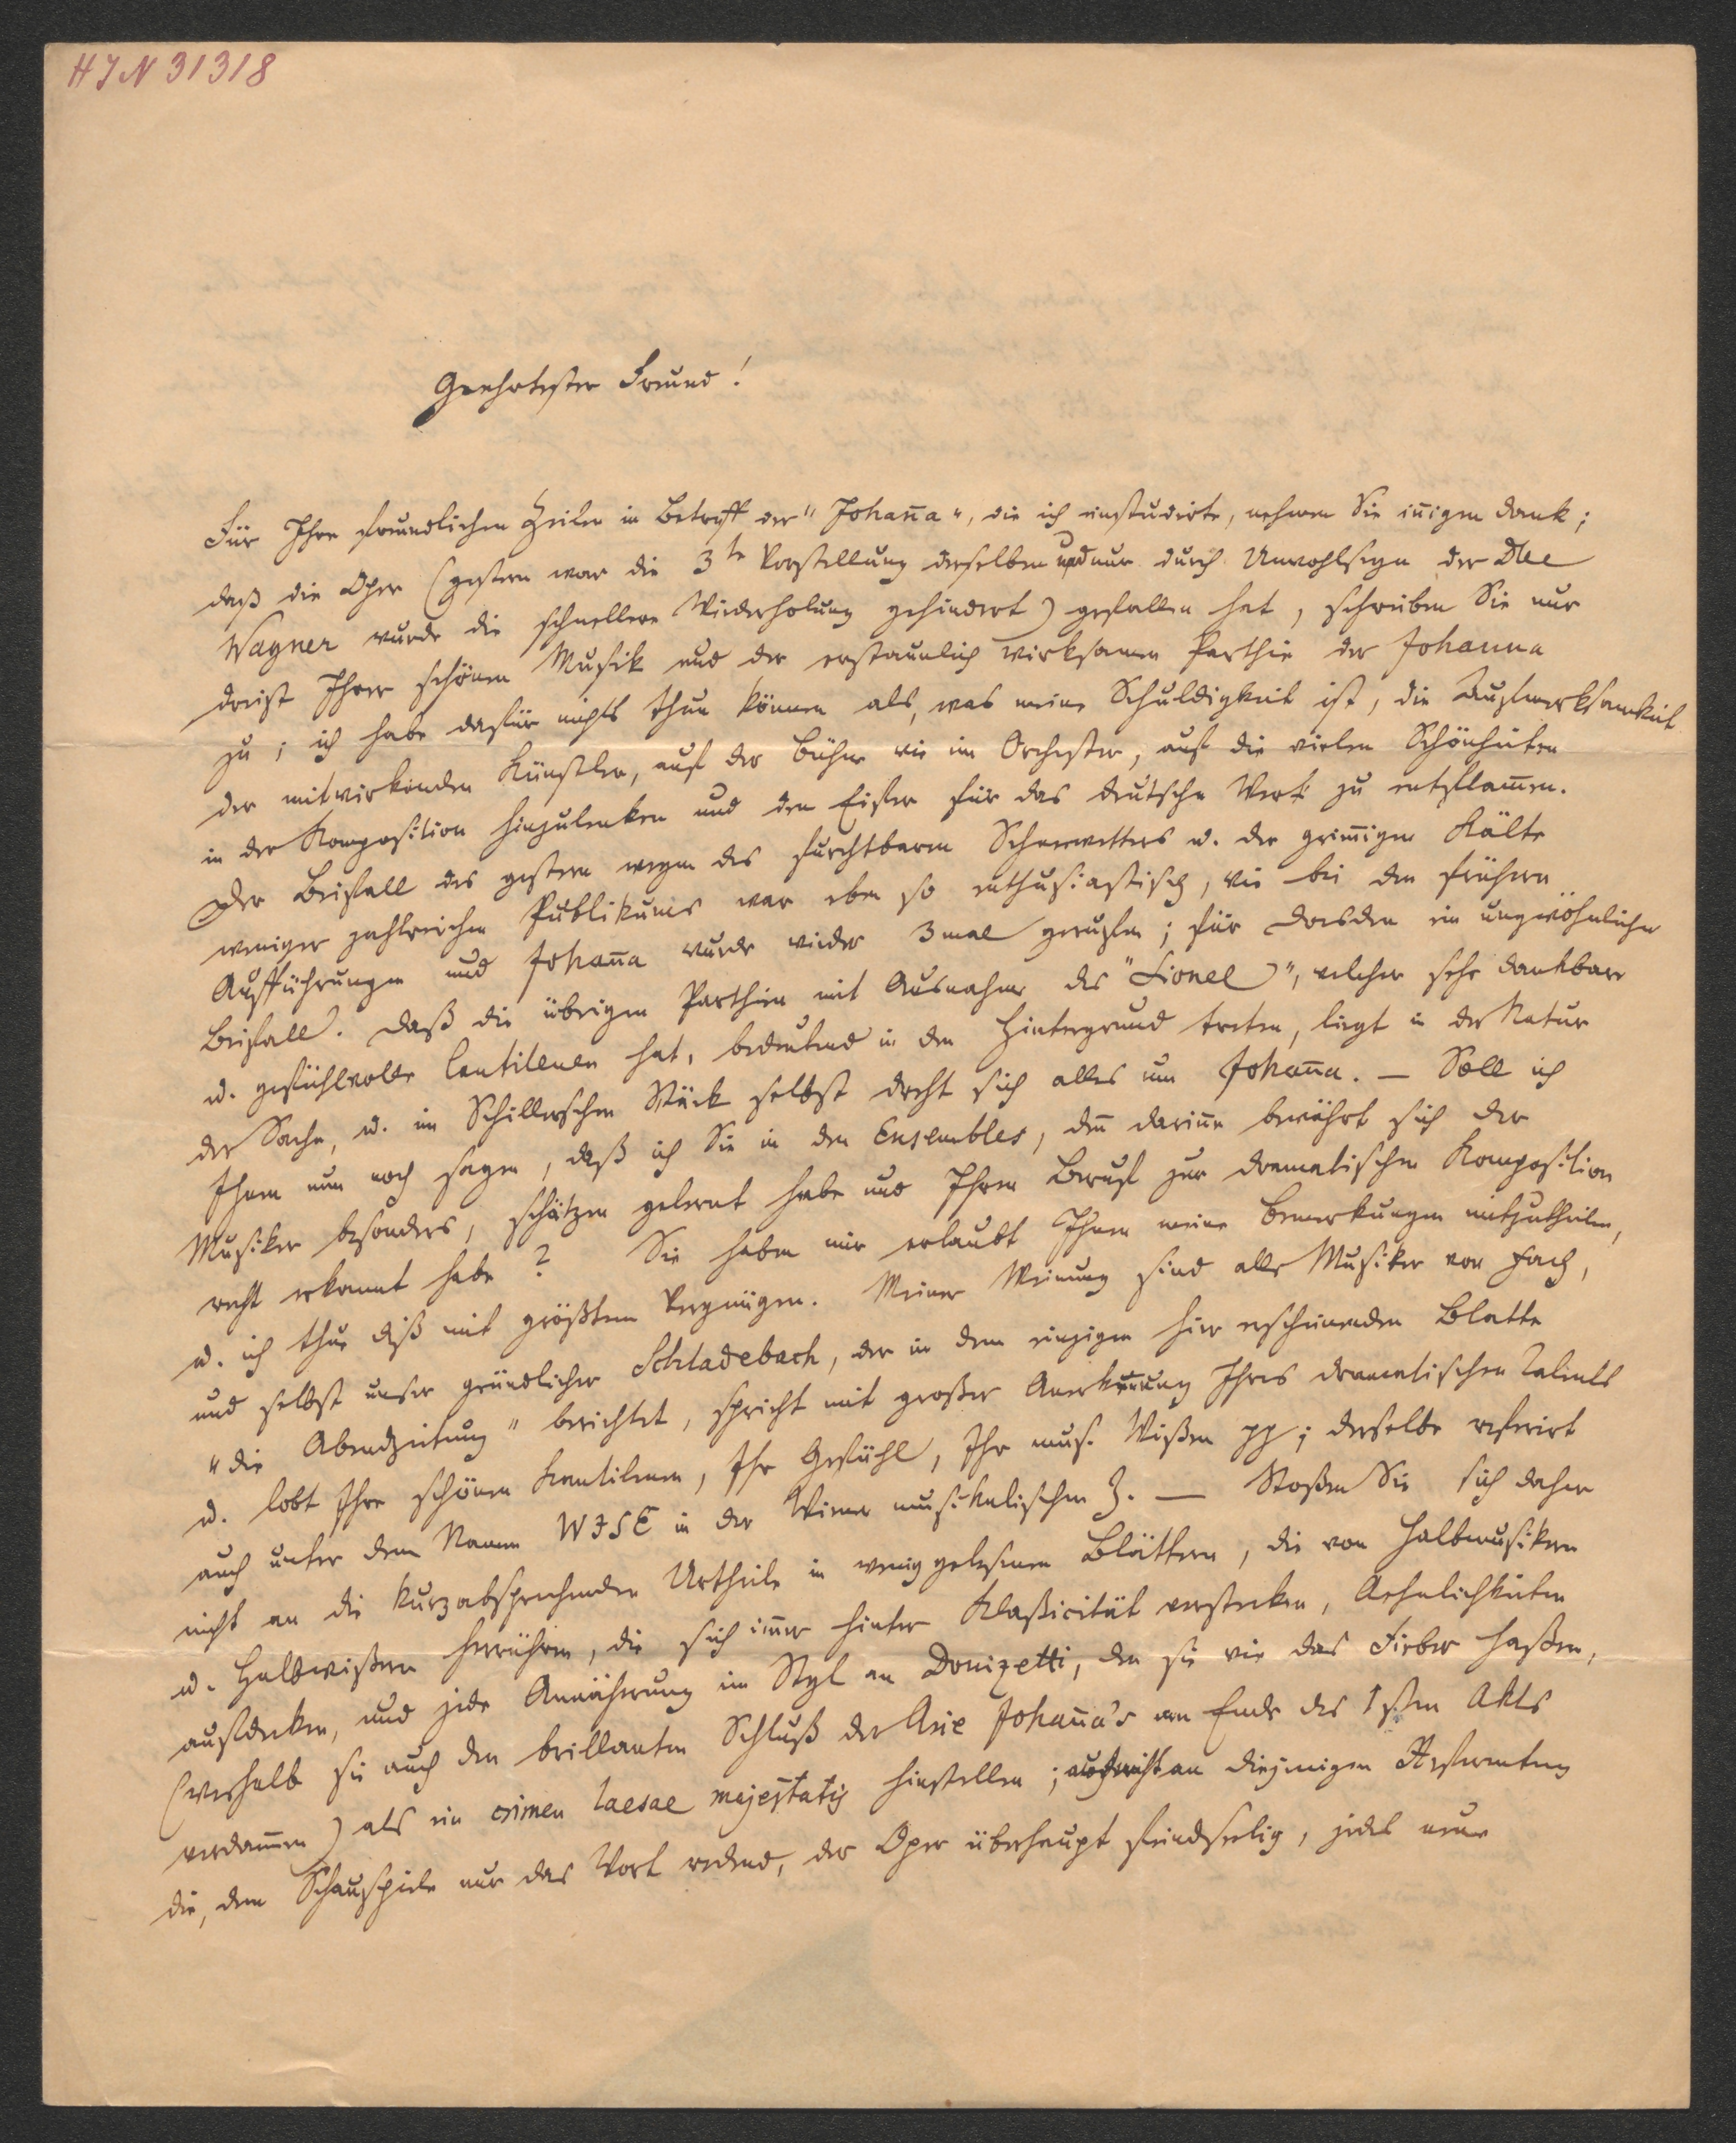 HJN 31318
Geehrtester Freund!
Für Ihre freundlichen Zeilen in Betreff der "Johan̄a", die ich einstudirte, nehmen Sie in̄igen Dank;
daß die Oper (gestern war die 3te Vorstellung derselben und nur durch Unwohlseyn der Dlle
Wagner wurde die schnellere Wiederholung gehindert) gefallen hat, schreiben Sie nur
dreist Ihrer schönen Musik und der erstaunlich wirksamen Parthie der Johanna
zu; ich habe dafür nichts thun können als, was meine Schuldigkeit ist, die Aufmerksamkeit
der mitwirkenden Künstler, auf der Bühne wie im Orchester, auf die vielen Schönheiten
in der Komposition hinzulenken und den Eifer für das deutsche Werk zu entflam̄en.
Der Beifall des gestern wegen des furchtbaren Schneewetters u. der grim̄igen Kälte
weniger zahlreichen Publikums war eben so enthusiastisch, wie bei den frühern
Aufführungen und Johan̄a wurde wieder 3mal gerufen; für Dresden ein ungewöhnlicher
Beifall. Daß die übrigen Parthien mit Ausnahme des "Lionel", welcher sehr dankbare
u. gefühlvolle Cantilenen hat, bedeutend in den Hintergrund treten, liegt in der Natur
der Sache, u. im Schillerschen Stück selbst dreht sich alles um Johan̄a. — Soll ich
Ihnen nun noch sagen, daß ich Sie in den Ensembles, den̄ darin̄e bewährt sich der
Musiker besonders, schätzen gelernt habe und Ihren Beruf zur dramatischen Komposition
recht erkannt habe? Sie haben mir erlaubt Ihnen meine Bemerkungen mitzutheilen,
u. ich thue dieß mit größtem Vergnügen. Meiner Meinung sind alle Musiker von Fach,
und selbst unser gründlicher Schladebach, der in dem einzigen hier erscheinenden Blatte
"die Abendzeitung" berichtet, spricht mit großer Anerkennung Ihres dramatischen Talents
u. lobt Ihre schönen Kantilenen, Ihr Gefühl, Ihr mus. Wißen pp; derselbe referirt
auch unter dem Namen WISE in der Wiener musikalischen Z. — Stoßen Sie sich daher
nicht an die kurzabsprechenden Urtheile in wenig gelesenen Blättern, die von Halbmusikern
u. Halbwißern herrühren, die sich im̄er hinter Klaßicität verstecken, Aehnlichkeiten
aufdecken, und jede Annäherung im Styl an Donizetti, den sie wie das Fieber haßen,
(weshalb sie auch den brillanten Schluß der Arie Johan̄a's am Ende des 1sten Akts
verdam̄en) als ein crimen laesae majestatis hinstellen; auch nicht an diejenigen Referenten
die, dem Schauspiele nur das Wort redend, der Oper überhaupt feindseelig, jedes neue